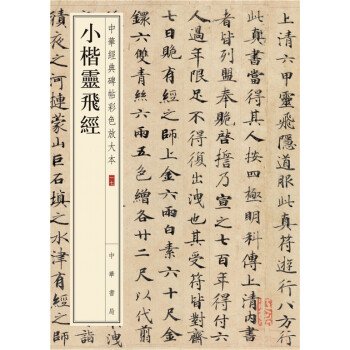 上清六甲靈飛隱道服此真符遊行八方行
此真書當得其人按四極明科傳上清內書
者皆列盟奉跪啓誓乃宣之七百年得付六
人過年限足不得復出泄也其受符皆對齋
七日賝有經之師上金六兩白素六十尺金
鐶六雙青絲六兩五色繒各廿二尺以代翦
中華經典碑帖彩色放大本
小楷靈飛經
中華書局
積夜之河摙蒙山巨石填之水津有經之師